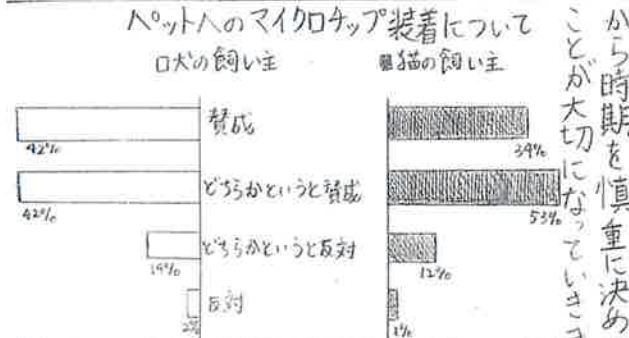 ペットへのマイクロチップ装着について
□犬の飼い主
■猫の飼い主
42%
賛成
34%
42%
どちらかというと賛成
53%
14%
どちらかというと反対
12%
2%
反対
1%
から時期を慎重に決め
ことが大切になっていきま